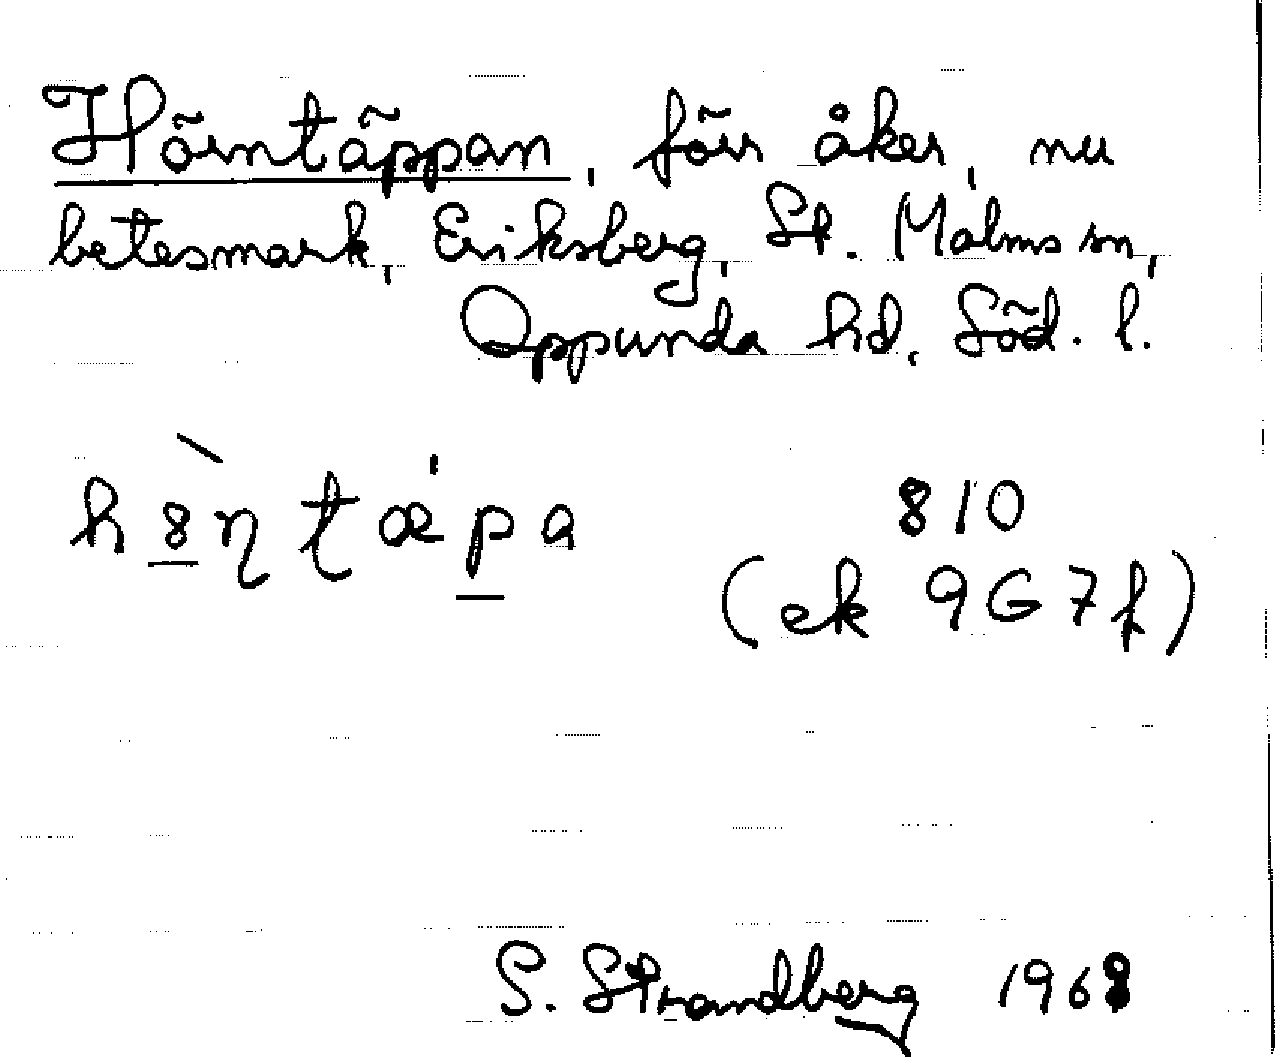 Hörntäppan, förr åker, nu
betesmark, Eriksberg, St. Malms sn,
Oppunda hd, Söd. l.
h8̲̀ƞtæ'p̲a 810
(ek 9G7f)
S. Strandberg 1968